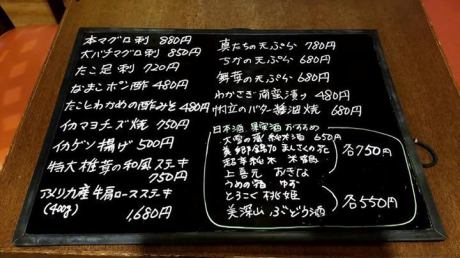 本マグロ刺 880円
大バチマグロ刺 850円
たこ足刺 720円
なまこポン酢 480円
たことわかめの酢みそ 480円
イカマヨチーズ焼 750円
イカゲソ揚げ 500円
特大椎茸の和風ステキ
750円
アメリカ産牛肩ロースステキ
(400g) 1,680円
真たちの天ぷら 780円
ちかの天ぷら 680円
鮮芽の天ぷら 680円
わかさぎ南蛮漬け 480円
帆立のバター醤油焼 680円
日本酒 果実酒 おすすめ
大雪の蔵 純米酒 650円
ましさくの花
純米
上喜元 おきな
各750円
うめの宿 ゆず
とろこく 桃姫
美深山 ぶどう酒
各550円